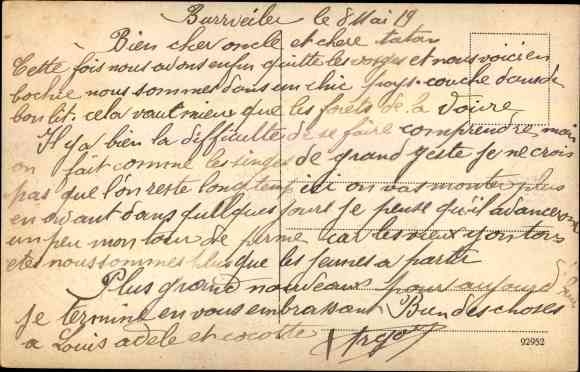 Burrveiler le 8 Mai 19
Bien cher oncle et chere tatan
Cette fois nous avons enfin quitté les vosges et nous voici en
bochie nous sommes dans un chic pays. couche dans de
bon lit. cela vaut mieux que les forets de la Voivre
Il y a bien la difficulté de se faire comprendre, mais
on fait comme les singes de grand geste je ne crois
pas que l'on reste longtemp ici on vas monter plus
en avant dans quelques jours je pense qu'il avancerons
un peu mon tour de perme car les vieux y ont tous
etes nous sommes plus que les jeunes a partir
Plus grand nouveaux pour aujourd
je termine en vous embrassant Bien des choses
a Louis adele et cocotte
92952